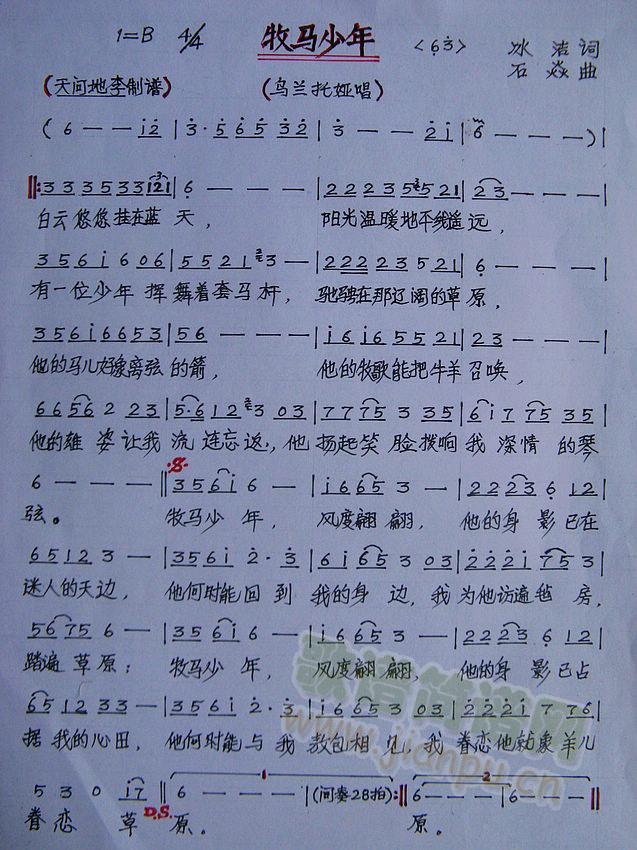 1=B 4/4 牧马少年 <6̣ 3̇> 冰洁词
石焱曲
(天问地李制谱) (乌兰托娅唱)
( 6 — — i2 | 3· 5 6 5 32 | 3 — — 2i | 6 — — — ) |
‖: 3 3 3 5 3 3 121 | 6 — — — | 2 2 2 3 5 5 21 | 2 3 — — — |
白云悠悠挂在蓝天， 阳光温暖地平线遥远，
3 5 6 i 6 0 6 | 5 5 2 1 3 — | 2 2 2 2 3 5 2 1 | 6 — — — |
有一位少年挥舞着套马杆， 驰骋在那辽阔的草原，
3 5 6 i 6 6 5 3 | 5 6 — — — | i 6 i 6 5 5 2 1 | 2 3 — — — |
他的马儿好象离弦的箭， 他的牧歌能把牛羊召唤，
6 6 5 6 2 2 3 | 5·6 1 2 3 0 3 | 7 7 7 5 3 3 5 | 6 i 7 7 5 3 5 |
他的雄姿让我流连忘返，他扬起笑脸拨响我深情的琴
6 — — — ‖ 3 5 6 i 6 — | i 6 6 5 3 — | 2 2 2 3 6 1 2 |
弦。 牧马少年， 风度翩翩， 他的身影已在
6 5 1 2 3 — | 3 5 6 i 2· 3 | 6 i 6 5 3 0 3 | 2 2 2 i 7 5 3 |
迷人的天边， 他何时能回到我的身边，我为他访遍毡房，
5 6 7 5 6 — | 3 5 6 i 6 — | i 6 6 5 3 — | 2 2 2 3 6 1 2 |
踏遍草原； 牧马少年， 风度翩翩， 他的身影已占
6 5 1 2 3 3 — | 3 5 6 i 2· 3 | i 6 6 5 3 0 3 | 2 2 2 i 7 7 6 |
据我的心田， 他何时能与我敖包相见，我眷恋他就象羊儿
5 3 0 i7 | 6 — — — | — — (间奏28拍) :‖ 6 — — — | 6 — — ‖
1 2
D.S.
眷恋草原。 原。
歌谱简谱网
www.jianpu.cn